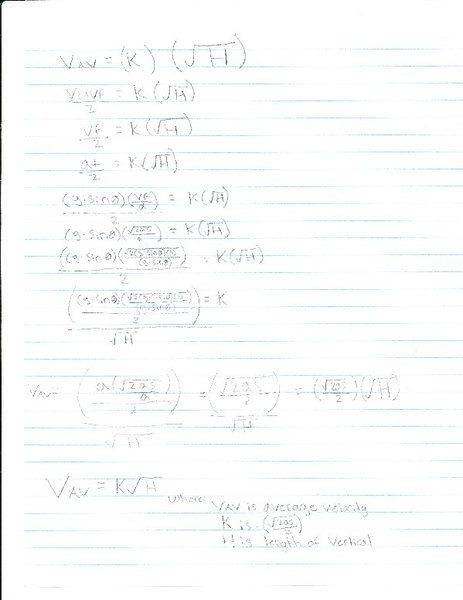 VAV = (K) (√H)
Vi+Vf/2 = K(√H)
Vf/2 = K(√H)
at/2 = K(√H)
(g·sinθ)(Vf/a)/2 = K(√H)
(g·sinθ)(√2as/a)/2 = K(√H)
K(√H)
= K
√H
VAV = (a(√2as/a)/2)/√H = (√2as/2)/√H = (√2as/2)(√H)
VAV = K√H
where: VAV is average velocity
K is (√2as/2)
H is length of vertical